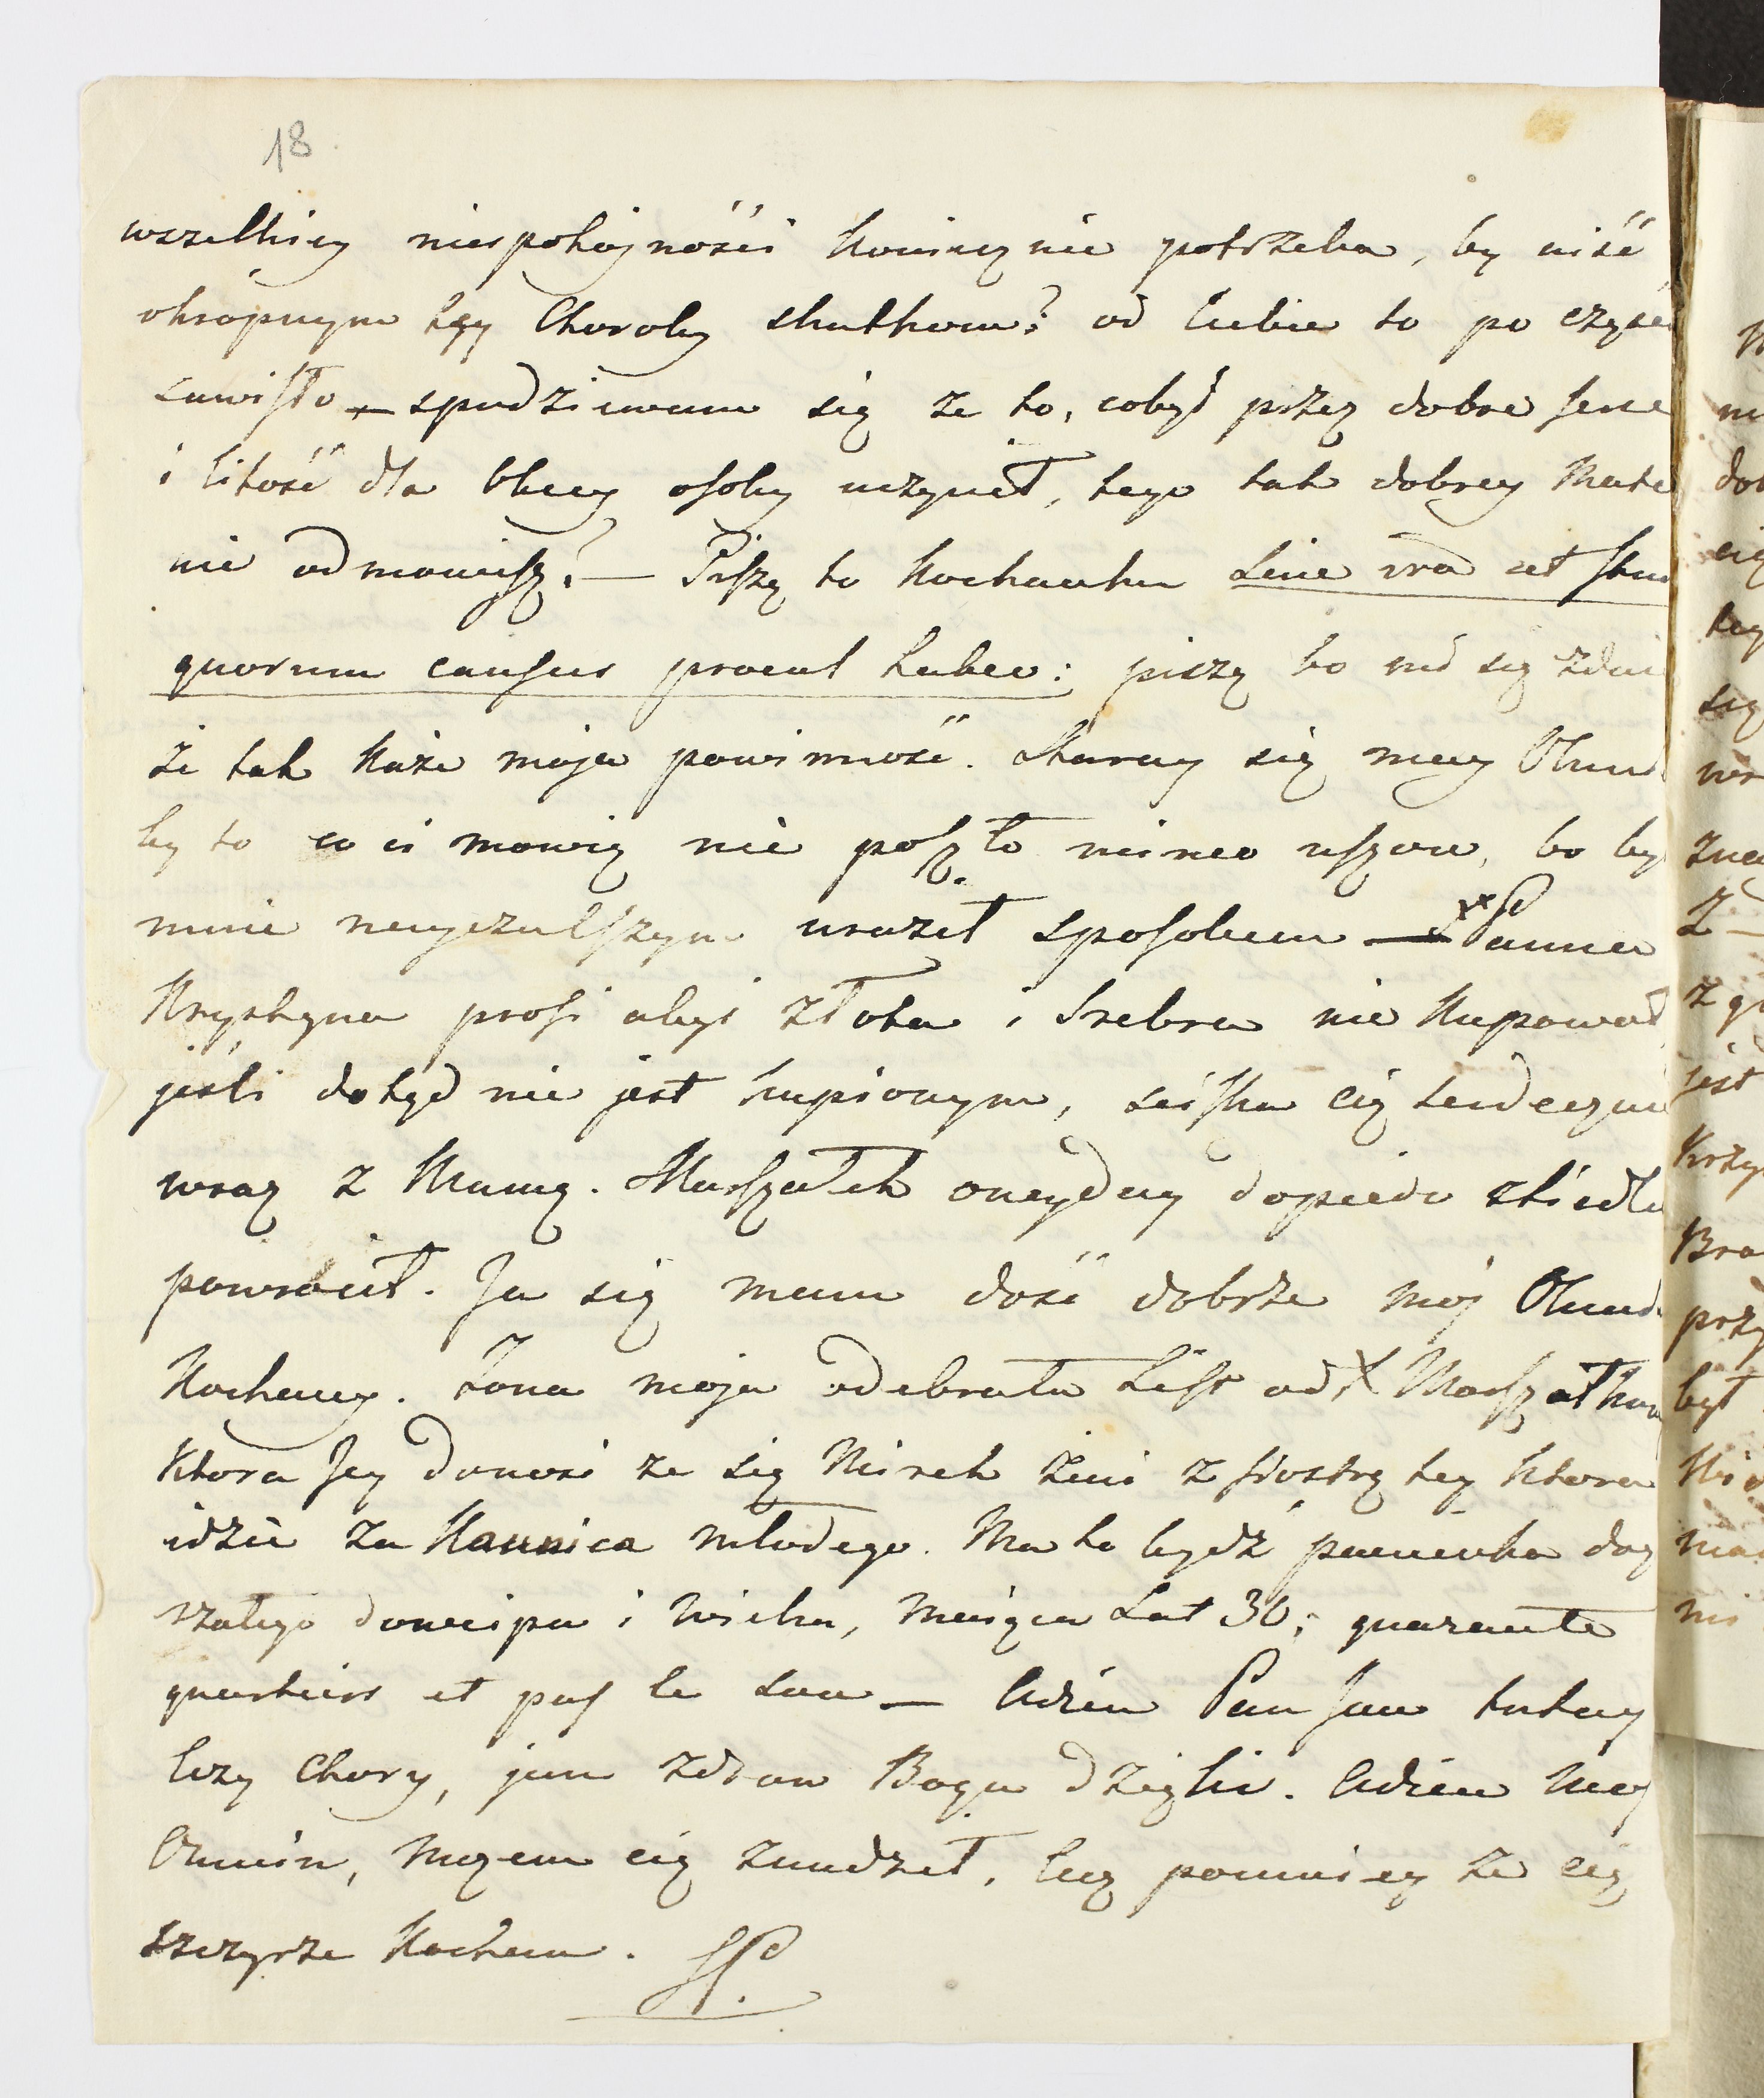 18
wszelkiey niespokoyności koniecznie potrzeba, by uiść
okropnym tey Choroby skutkom? od Ciebie to po części
zawisło — spodziewam się że to, cobyś przez dobre serce
i litość dla obcey osoby uczynił, tego tak dobrey Matce
nie odmowisz? — Piszę to Kochanku Sine ira et stud
quorum causas procul habeo: piszę bo mi się zdaie
że tak każe moja powinność. Staray się moy Olund
by to co ci mowię nie poszło mimo uszow, bo by
mnie nayczulszym uraził sposobem — Panna
Krystyna prosi abyś złota i srebra nie kupował
jeśli dotąd nie jest kupionym, ściska cię serdecznie
wraz z Mamą. Marszałek oneydey dopiero z Siedlc
powrócił. Ja się mam dość dobrze mój Olund
Kochany. Żona moja odebrała List od Marszałkow
Ktora Jey donosi że się Mirek żeni z siostrą tey ktora
idzie za Kaunica młodego. Ma to bydź panienka doy
rzałego dowcipu i wieku, maiąca Lat 30; quarante
quartiers et pas le sou — Adieu Pan Jan tutay
leży Chory, jam zdrow Bogu dzięki. Adieu moy
, mozem cię znudził, lecz pomniey że cię
szczyrze Kocham. SP.